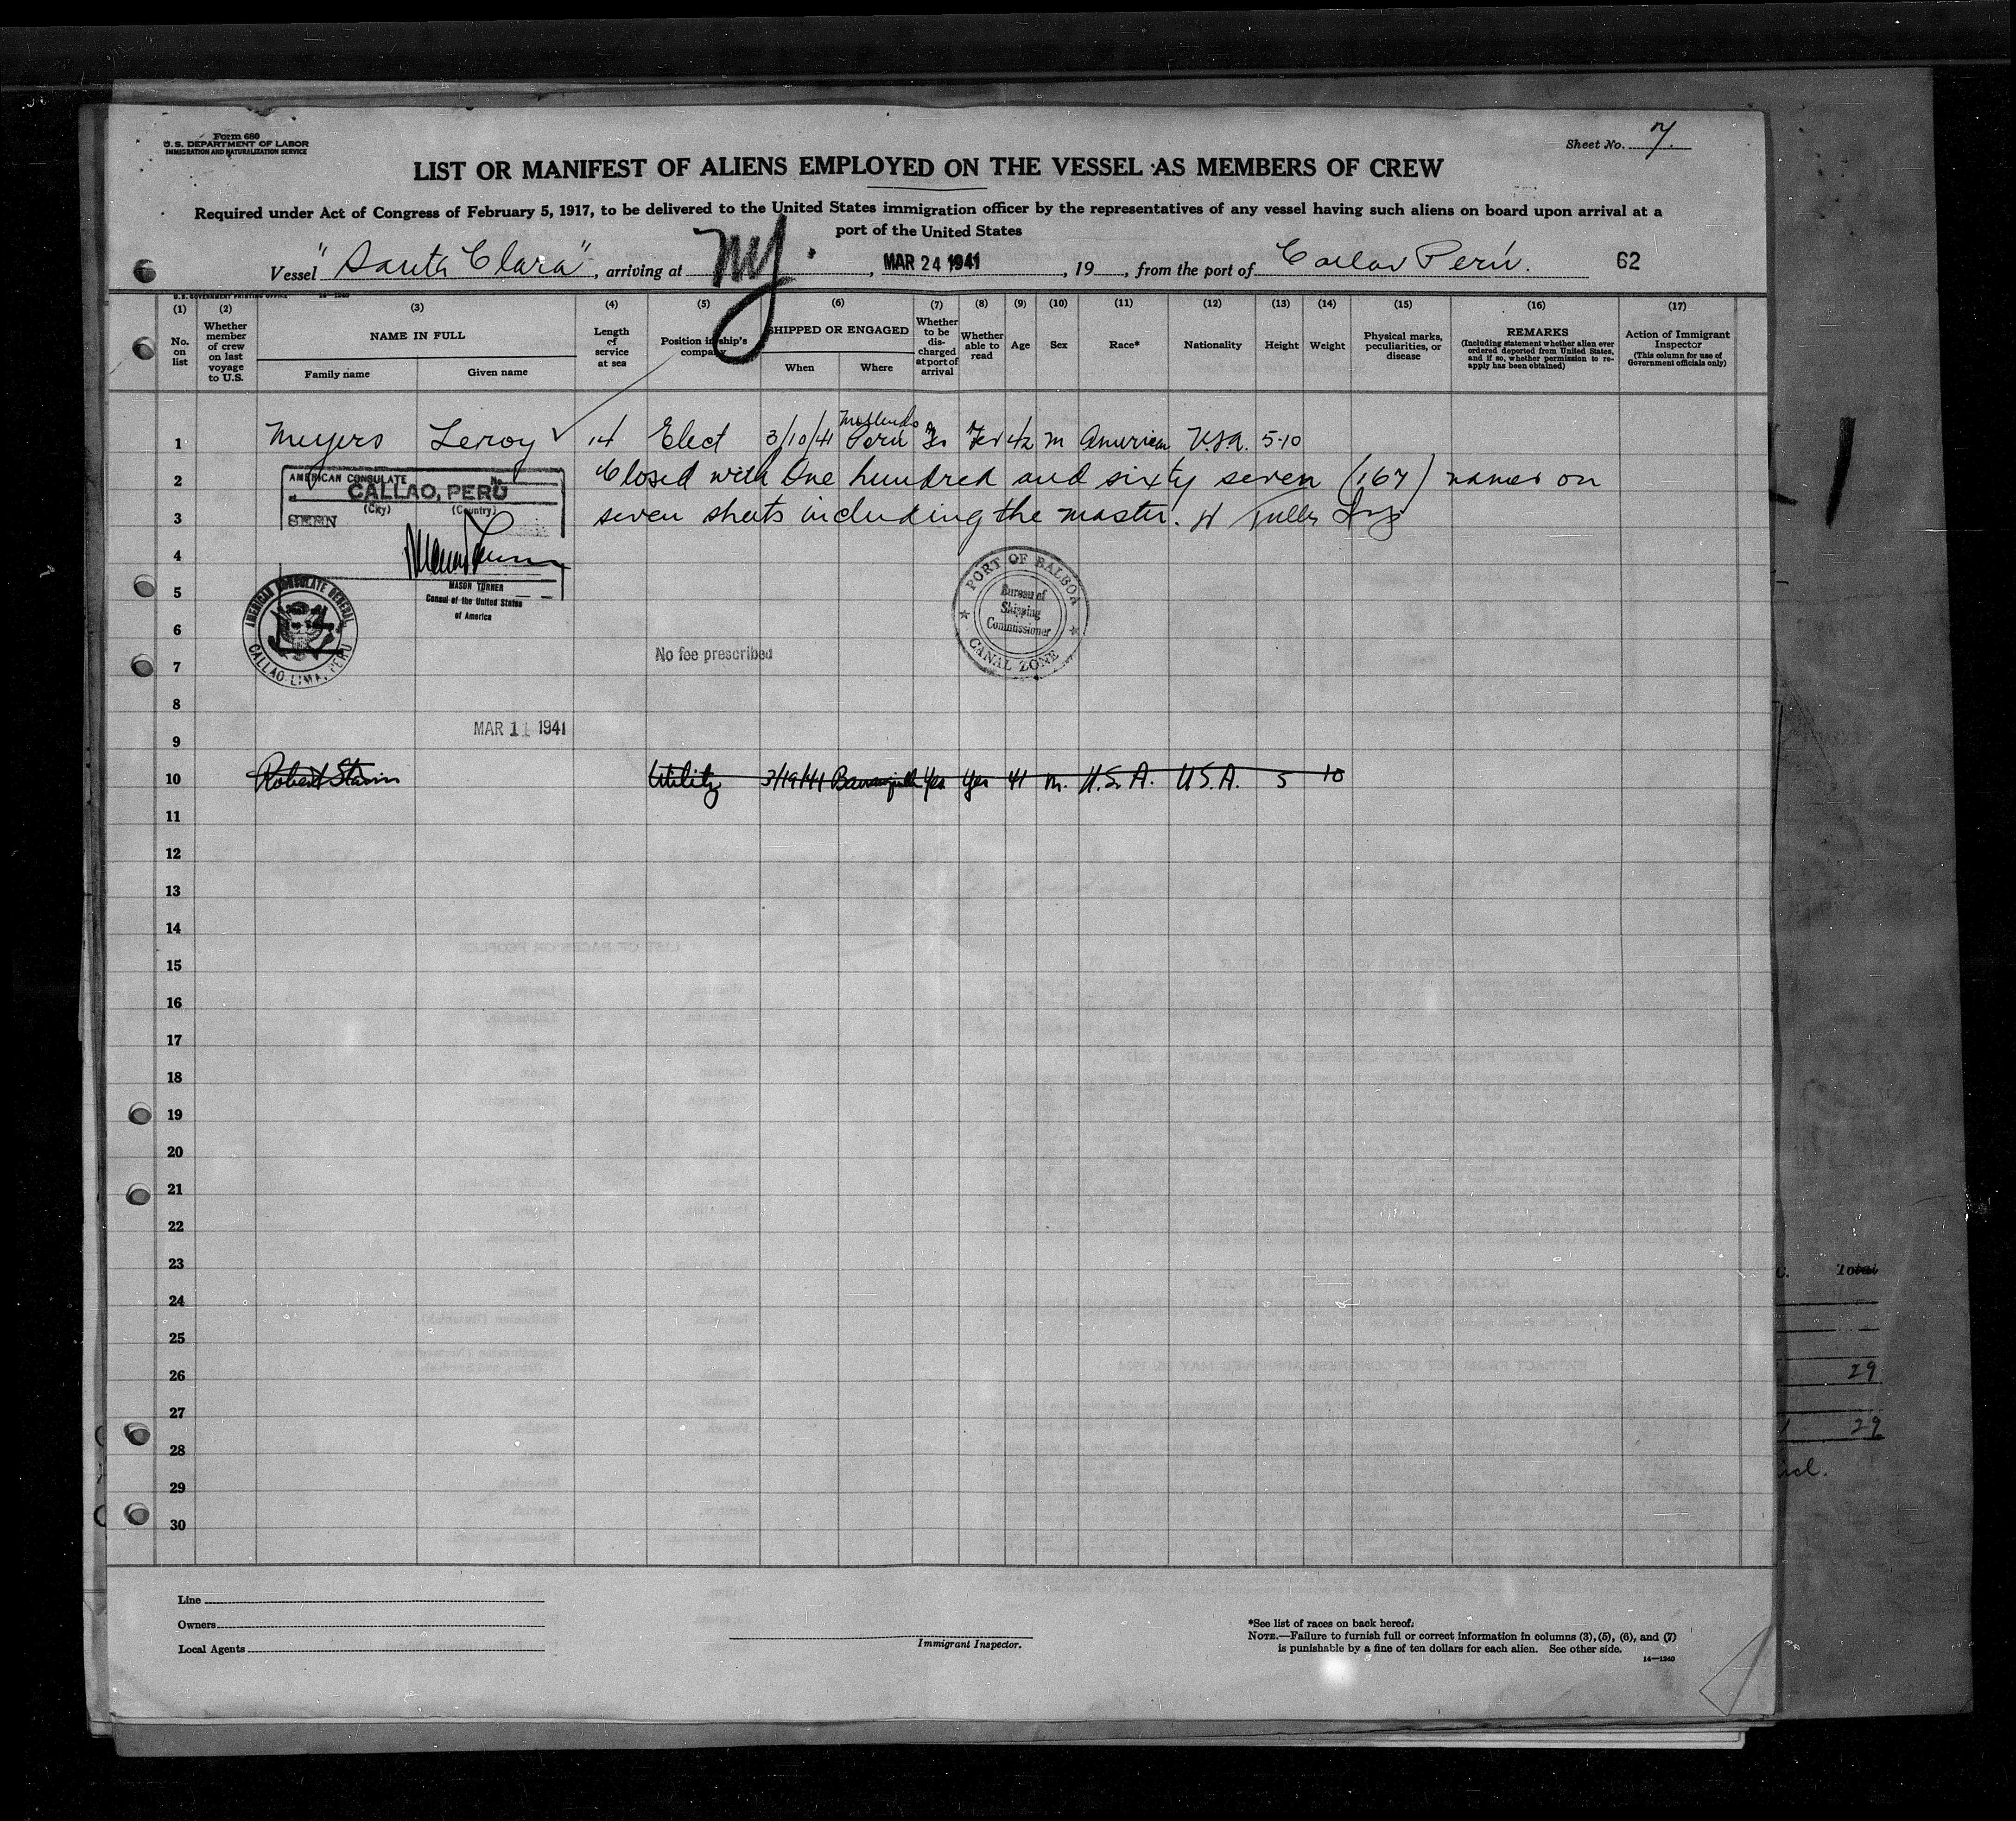 Form 680
U.S. DEPARTMENT OF LABOR
IMMIGRATION AND NATURALIZATION SERVICE
Sheet No. 7.
LIST OR MANIFEST OF ALIENS EMPLOYED ON THE VESSEL AS MEMBERS OF CREW
Required under Act of Congress of February 5, 1917, to be delivered to the United States immigration officer by the representatives of any vessel having such aliens on board upon arrival at a
port of the United States
Vessel "Santa Clara", arriving at NY., MAR 24 1941, 19, from the port of Callao Perú. 62
U.S. GOVERNMENT PRINTING OFFICE 14—1240
(1) (2) (3) (4) (5) (6) (7) (8) (9) (10) (11) (12) (13) (14) (15) (16) (17)
No. on list
Whether member of crew on last voyage to U.S.
NAME IN FULL
Family name
Given name
Length of service at sea
Position in ship's company
SHIPPED OR ENGAGED
When
Where
Whether to be discharged at port of arrival
Whether able to read
Age
Sex
Race*
Nationality
Height
Weight
Physical marks, peculiarities, or disease
REMARKS
(Including statement whether alien ever ordered deported from United States, and if so, whether permission to reapply has been obtained)
Action of Immigrant Inspector
(This column for use of Government officials only)
1 Meyers Leroy 14 Elect 3/10/41 Mollendo Perú Yes Yes 42 m American U.S.A. 5-10
2 Closed with One hundred and sixty seven (167) names on
3 seven sheets including the master.
AMERICAN CONSULATE
No.
CALLAO, PERU
(City) (Country)
SEEN
MASON TURNER
Consul of the United States
of America
AMERICAN CONSULATE GENERAL
CALLAO-LIMA, PERU
PORT OF BALBOA
Bureau of
Shipping
Commissioner
CANAL ZONE
4
5
6
No fee prescribed
7
8
MAR 11 1941
9
10 Robert Utility 3/19/41 Yes Yes 41 m. U.S.A. U.S.A. 5 10
11
12
13
14
15
16
17
18
19
20
21
22
23
24
25
26
27
28
29
30
Total
29
29
Line
Owners
Local Agents
Immigrant Inspector.
*See list of races on back hereof.
NOTE.—Failure to furnish full or correct information in columns (3), (5), (6), and (7)
is punishable by a fine of ten dollars for each alien. See other side.
14—1240